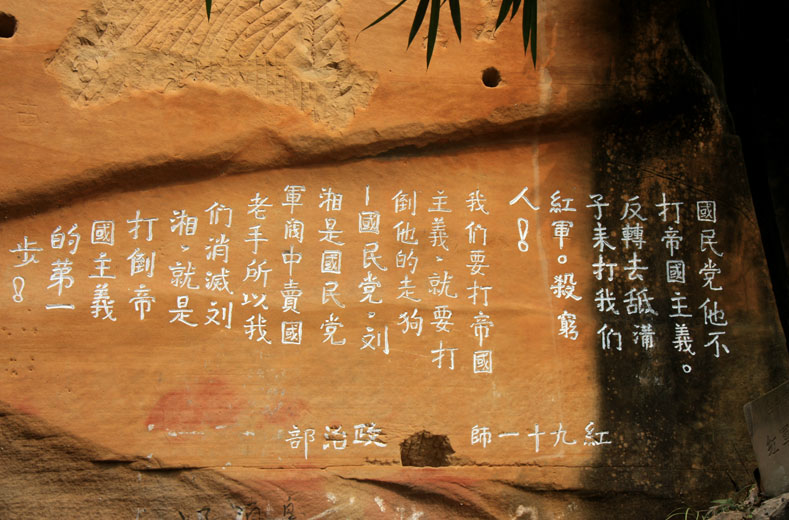 國民党他不
打帝國主義。
反轉去舐溝
子来打我们
紅軍。殺窮
人!
我们要打帝國
主義,就要打
倒他的走狗
—國民党。刘
湘是國民党
軍阀中賣國
老手所以我
们消滅刘
湘,就是
打倒帝
國主義
的第一
步!
紅九十一師 政治部